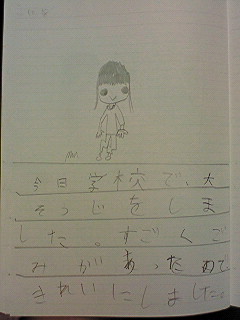 今日学校で、大
そうじをしま
した。すごくご
みがあったので
きれいにしました。